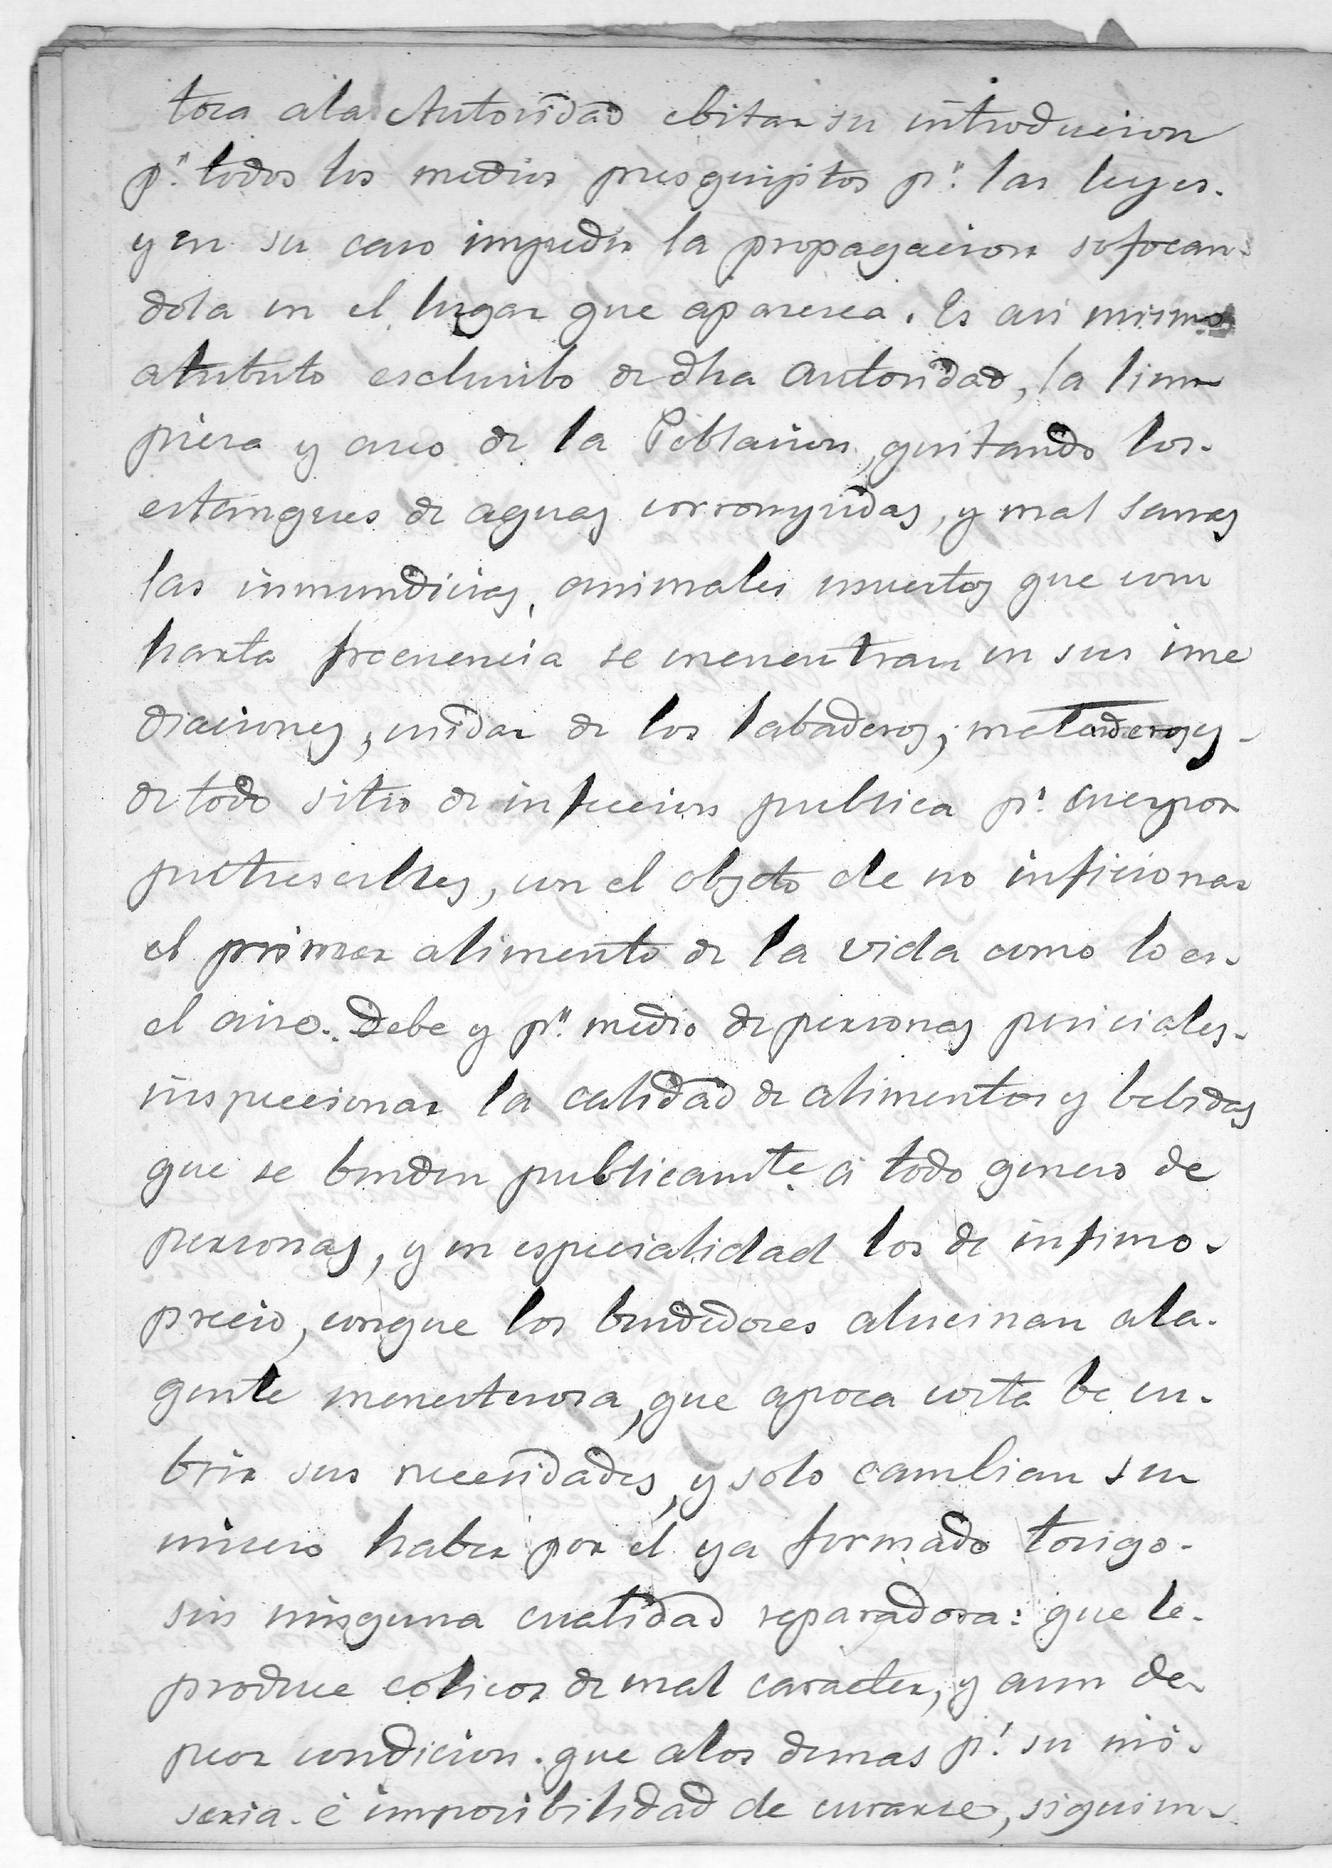 toca ala Autoridad ebitar su introducion
p.r todos los medios presquiptos p.r las leyes.
y en su caso impedir la propagacion sofocan-
dola en el lugar que aparesca. Es asi mismo
atributo esclusibo de dha Autoridad, la lim
piesa y aseo de la Poblacion, quitando los.
estanques de aguas corrompidas, y mal sanas
las inmundicias, animales muertos que con
harta frecuencia se encuentran en sus ime
diaciones, cuidar de los labaderos, mataderos y
de todo sitio de infeccion publica p.r cuerpos
putrescibles, con el objeto de no inficionar
el primer alimento de la vida como lo es.
el aire. Debe y p.r medio de personas periciales.
inspeccionar la calidad de alimentos y bebidas
que se benden publicam.te á todo genero de
personas, y en especialidad los de infimo.
precio, conque los bendedores alucinan ala.
gente menesterosa, que apoca costa be cu.
brir sus necesidades, y solo cambian su
misero haber por el ya formado tosigo.
sin ninguna cualidad reparadora: que le.
produce colicos de mal caracter, y aun de
peor condicion. que alos demas p.r su mi
seria. é imposibilidad de curarse, siguien